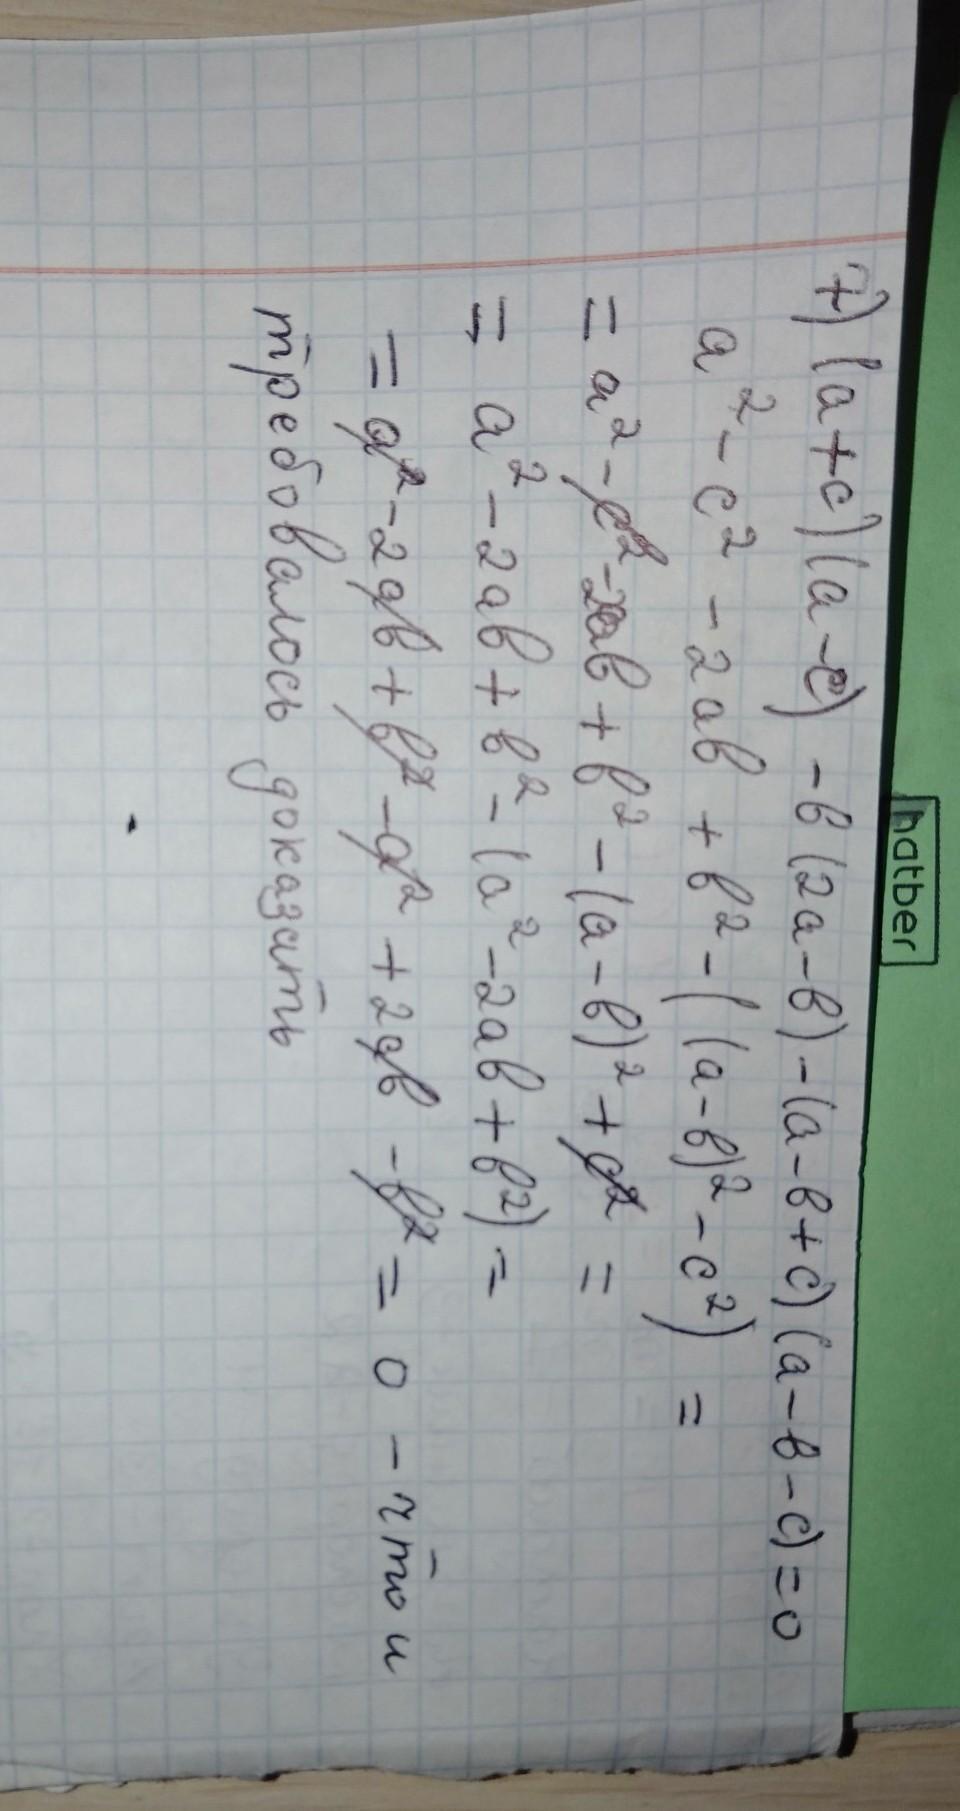 hatber
7) (a+c)(a-c) - b(2a-b) - (a-b+c)(a-b-c)=0
a² - c² - 2ab + b² - ((a-b)² - c²) =
= a² - c² - 2ab + b² - (a-b)² + c² =
= a² - 2ab + b² - (a² - 2ab + b²) =
= a² - 2ab + b² - a² + 2ab - b² = 0 - что и
требовалось доказать